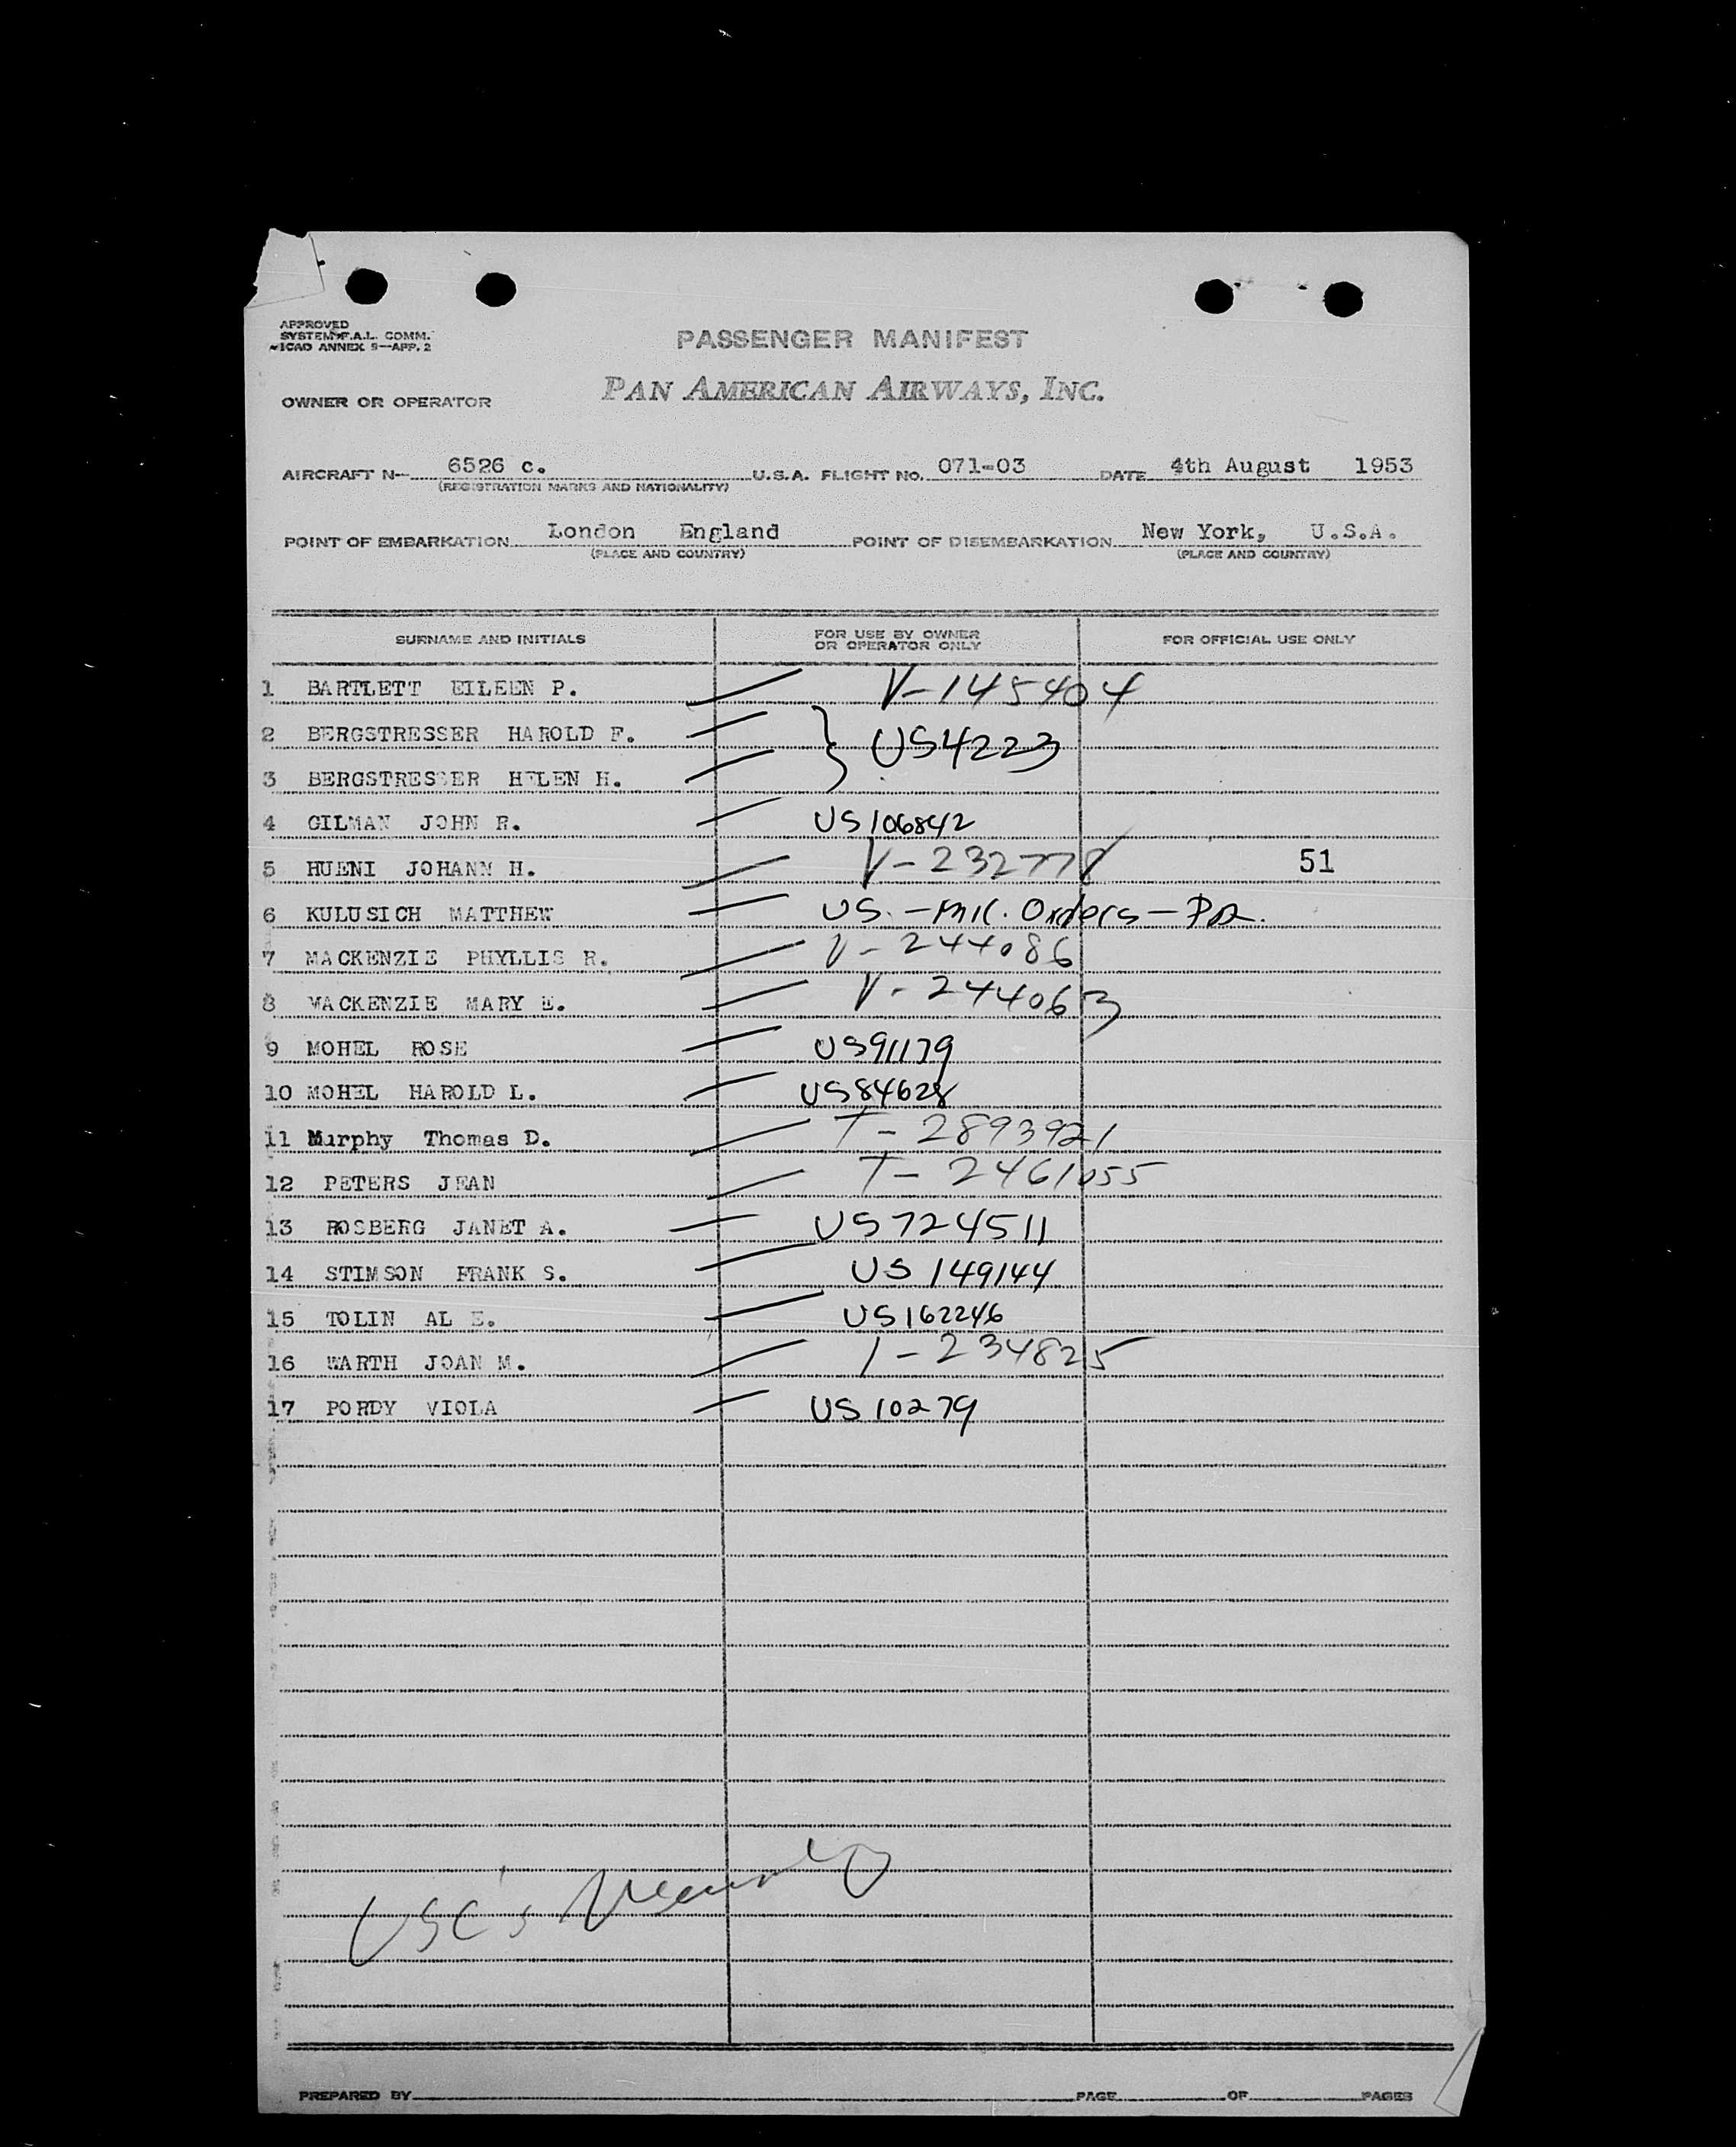 APPROVED
SYSTEM F.A.L. COMM.
ICAO ANNEX 9—APP. 2
PASSENGER MANIFEST
OWNER OR OPERATOR PAN AMERICAN AIRWAYS, INC.
AIRCRAFT N— 6526 c. U.S.A. FLIGHT NO. 071-03 DATE 4th August 1953
(REGISTRATION MARKS AND NATIONALITY)
POINT OF EMBARKATION London England POINT OF DISEMBARKATION New York, U.S.A.
(PLACE AND COUNTRY) (PLACE AND COUNTRY)
SURNAME AND INITIALS FOR USE BY OWNER OR OPERATOR ONLY FOR OFFICIAL USE ONLY
1 BARTLETT EILEEN P. V-145404
2 BERGSTRESSER HAROLD F. } US4223
3 BERGSTRESSER HELEN H.
4 GILMAN JOHN R. US106842
5 HUENI JOHANN H. V-232778 51
6 KULUSICH MATTHEW US.-Mil. Orders-
7 MACKENZIE PHYLLIS R. V-244086
8 MACKENZIE MARY E. V-244063
9 MOHEL ROSE US91179
10 MOHEL HAROLD L. US84628
11 Murphy Thomas D. T-2893921
12 PETERS JEAN T-2461055
13 ROSBERG JANET A. US724511
14 STIMSON FRANK S. US 149144
15 TOLIN AL E. US162246
16 WARTH JOAN M. I-234825
17 PORDY VIOLA US10279
USC's
PREPARED BY PAGE OF PAGES